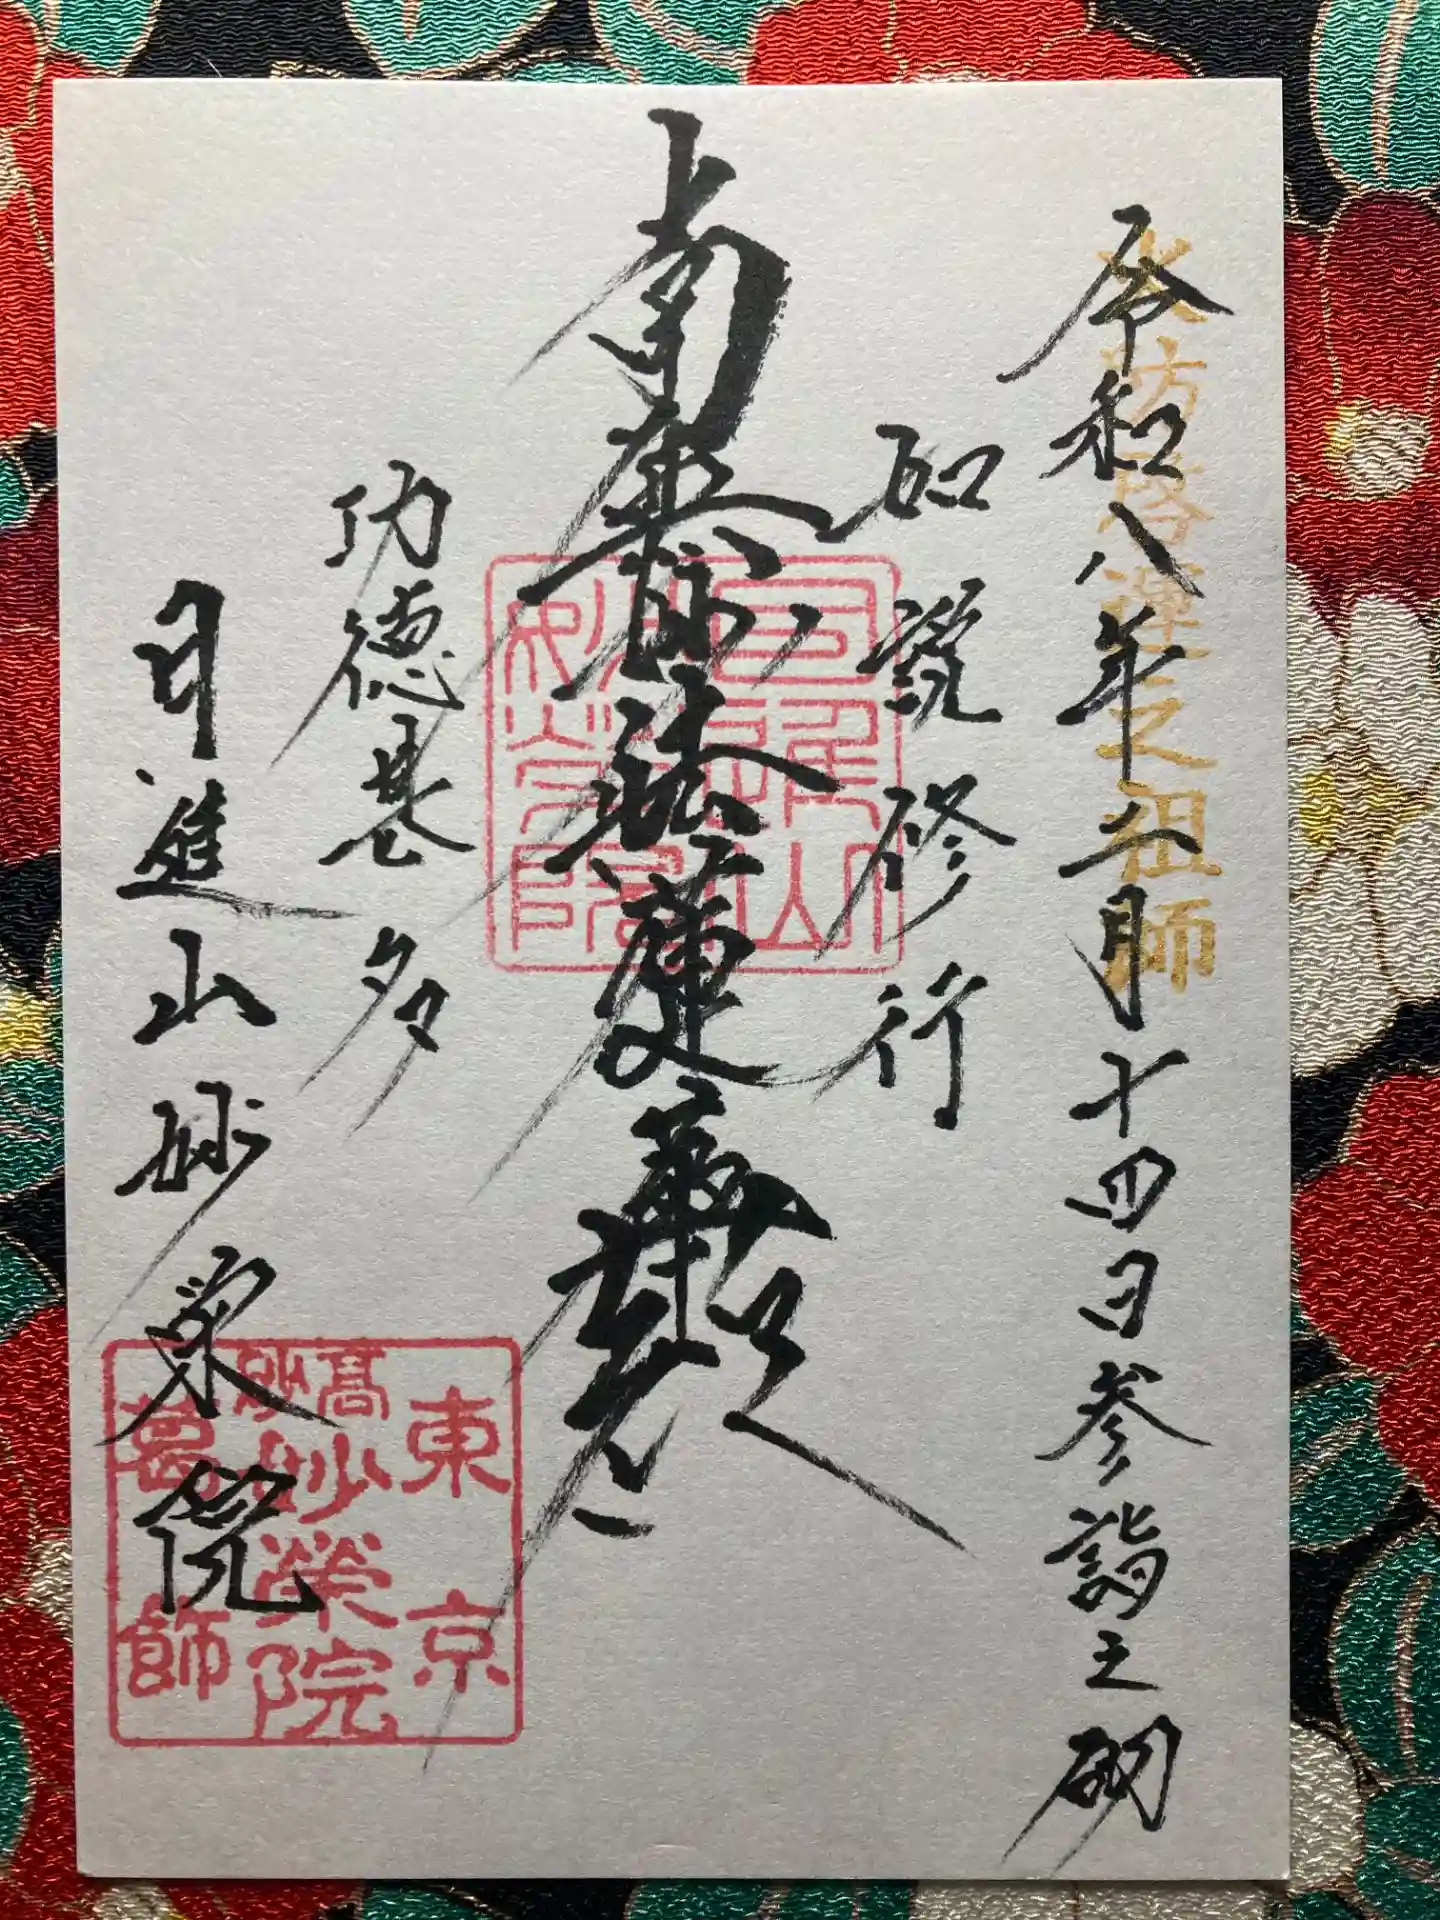 之祖師
令和八年二月十四日参詣之砌
如説修行
南無妙法蓮華経
功徳甚多
日進山妙栄院
東京
高砂
妙榮院
葛飾